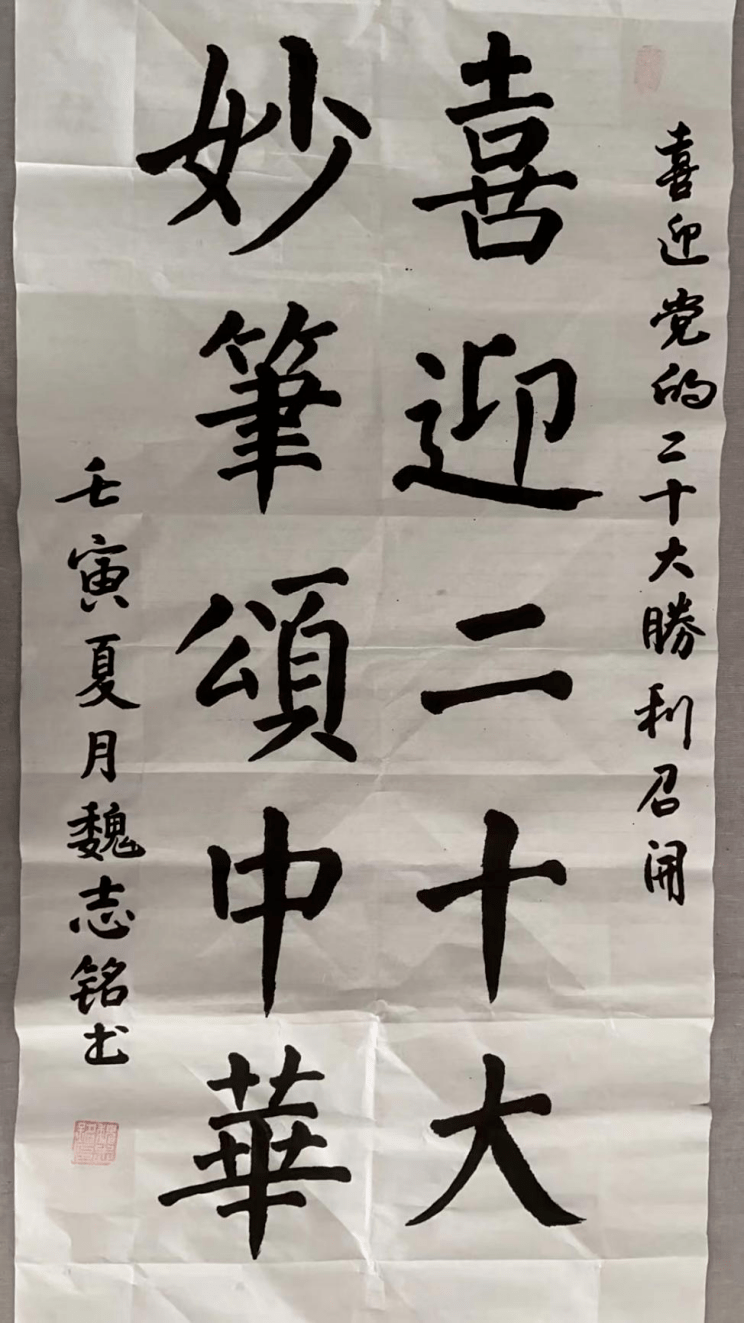 喜迎党的二十大勝利召開
喜迎二十大
妙筆頌中華
壬寅夏月魏志铭书